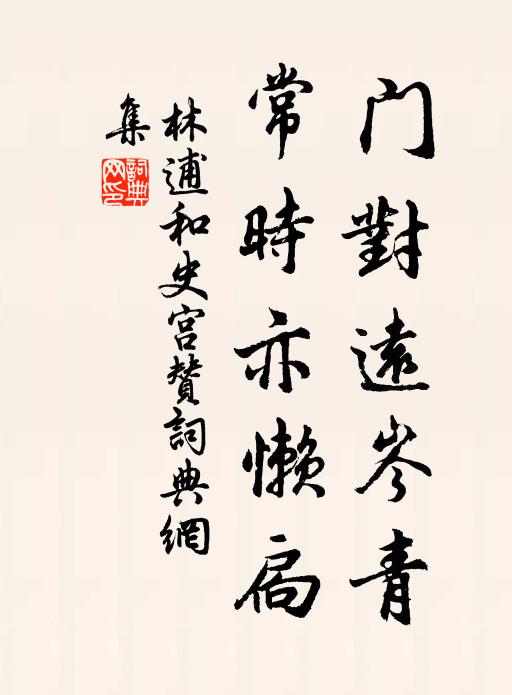 門對遠岑青
常時亦懶扃
林逋和史宮贊詞典網
集
詞典網印